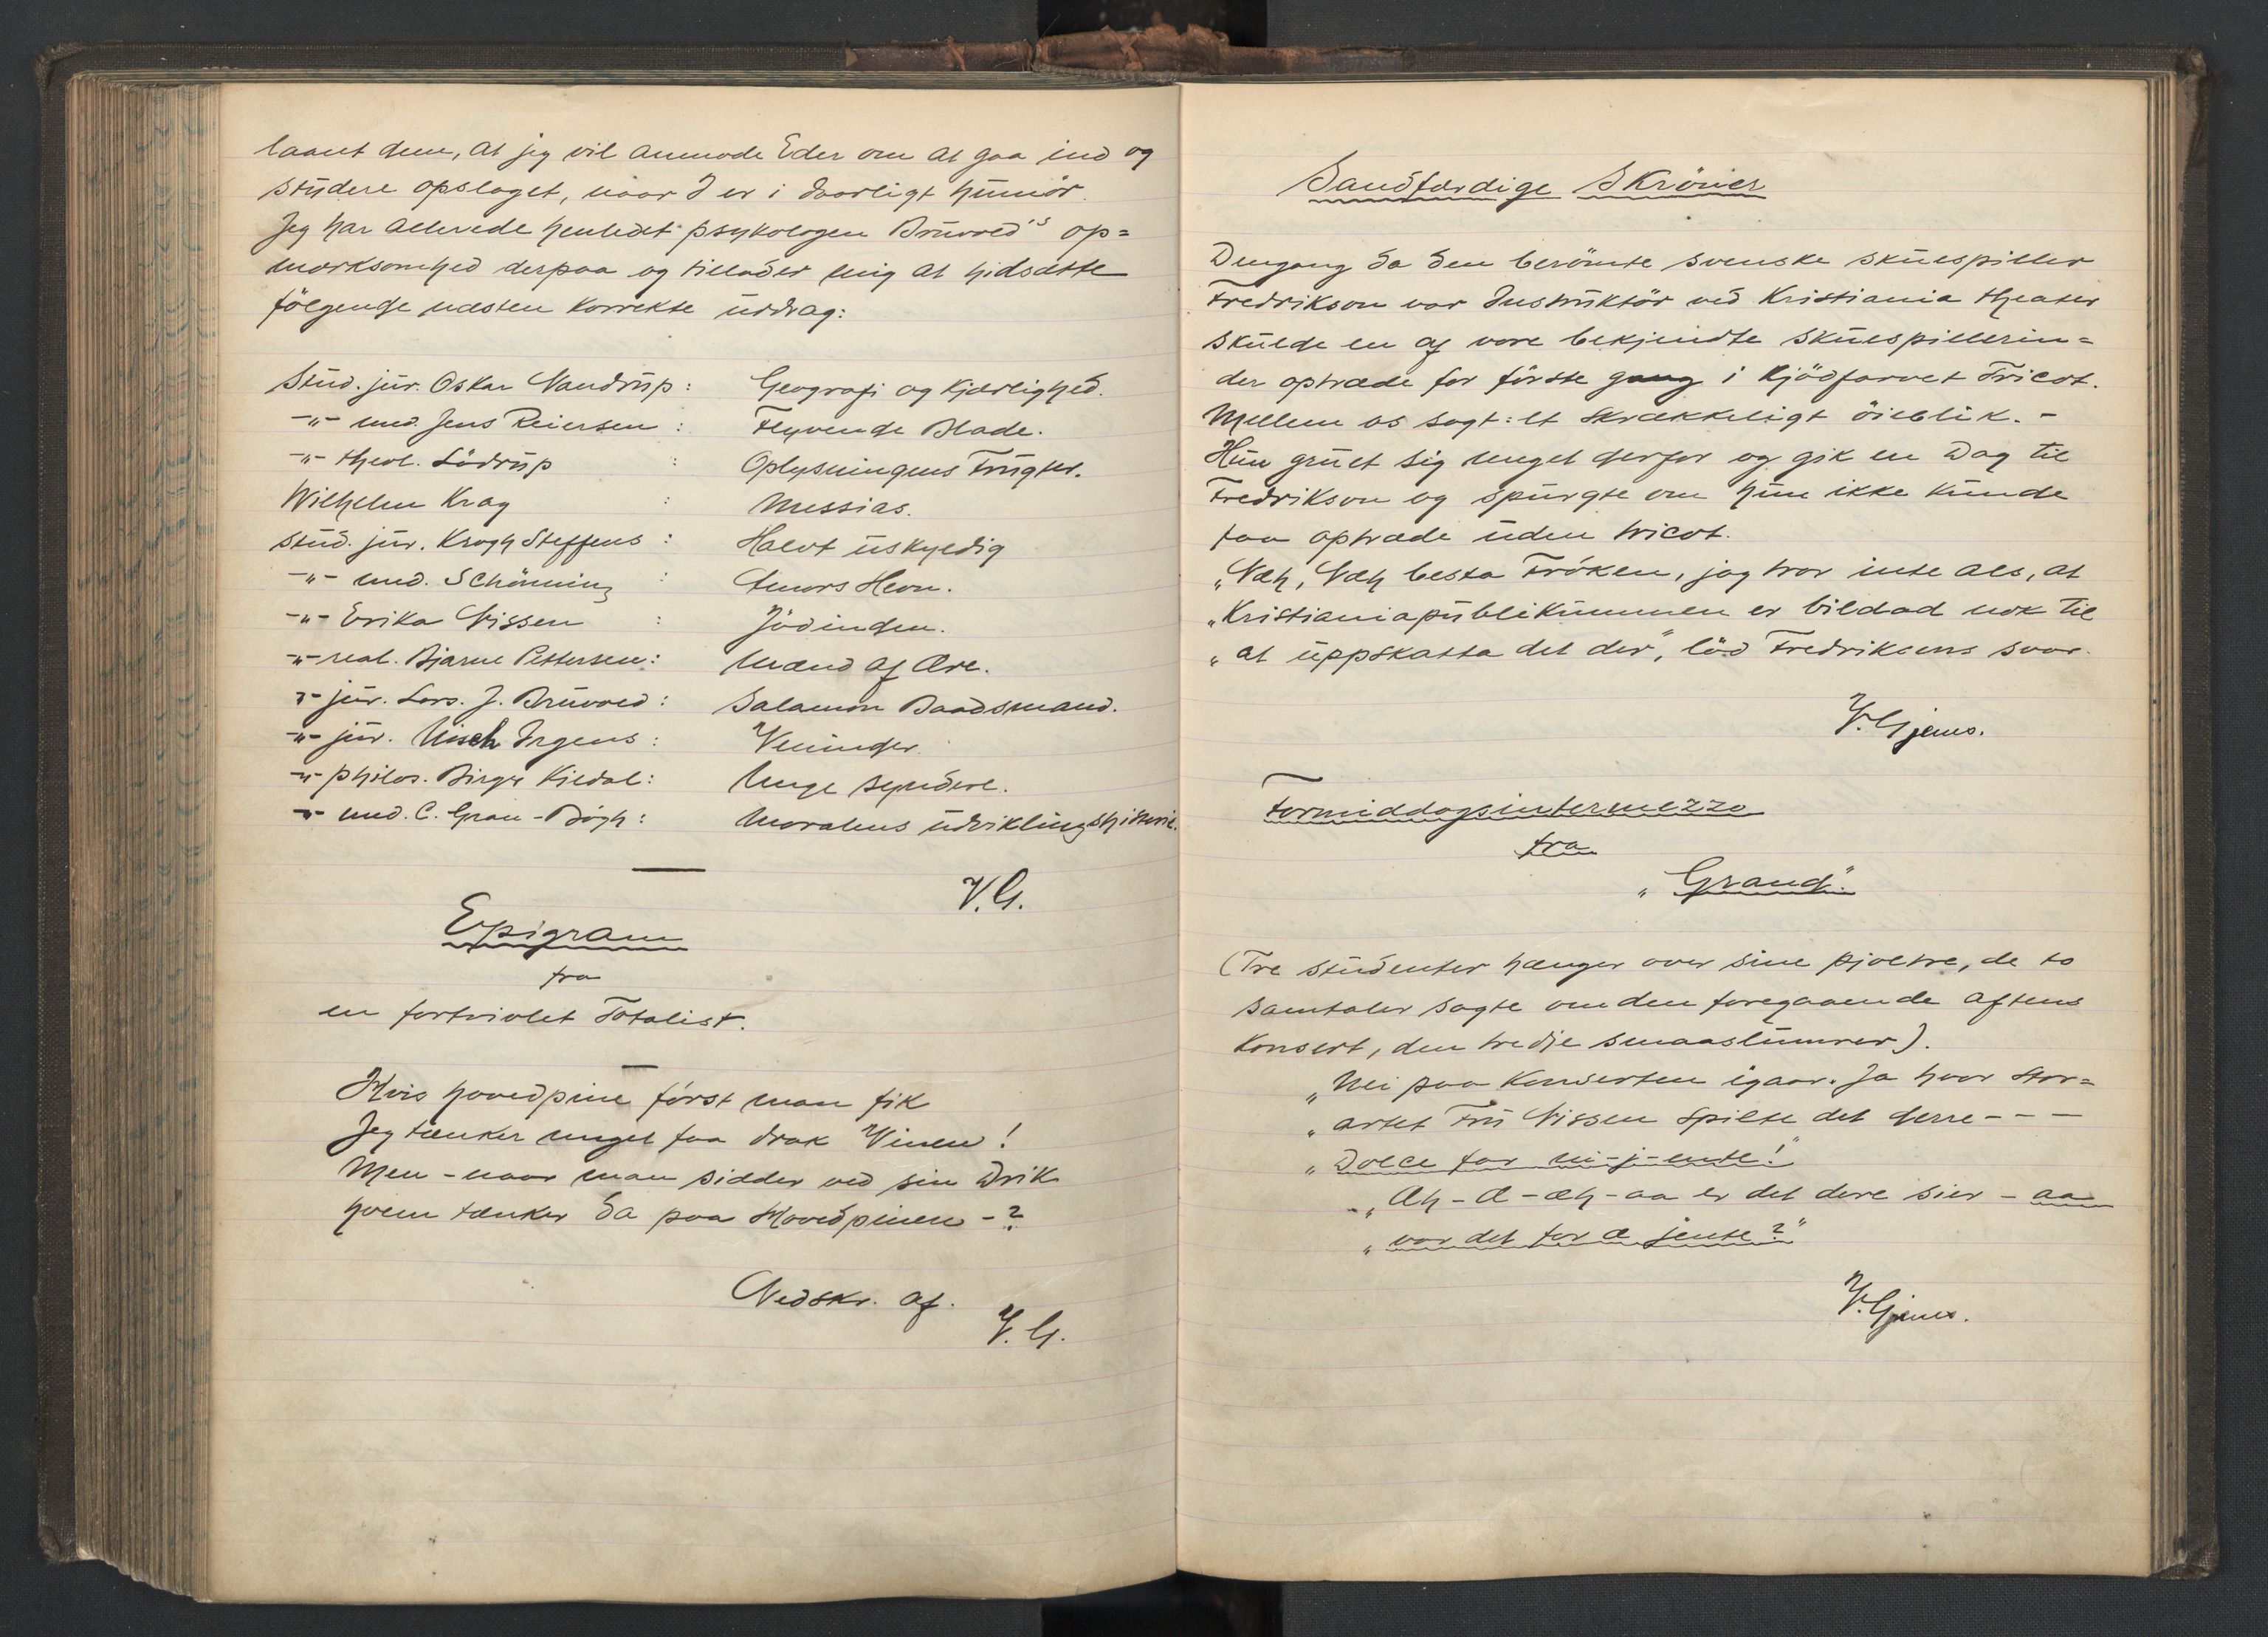 laant dem, at jeg vil anmode Eder om at gaa ind og
studere opslaget, naar I er i daarligt humör.
Jeg har allerede henledet psykologen Bruvold's op=
mærksomhed derpaa og tillader mig at hidsætte
fölgende næsten korrekte uddrag:
Stud. jur. Oskar Nandrup: Geografi og Kjærlighed.
-"- med. Jens Reiersen: Flyvende Blade.
-"- theol. Lödrup : Oplysningens Frugter.
Wilhelm Krag : Messias.
Stud. jur. Krogh Steffens: Halvt uskyldig
-"- med. Schönning : Amors Hevn.
-"- Erika Nissen : Jödinden.
-"- real. Bjarne Pettersen: Mænd af Ære.
-"- jur. Lars. J. Bruvold: Salamon Baadsmand.
-"- jur. Irgens: Veninder.
-"- philos. Birger Kildal: Unge syndere.
-"- med. C. Grau-Bögh: Moralens udviklingshistorie.
V. G.
Epigram
fra
en fortvivlet Totalist.
Hvis hovedpine först man fik
Jeg tænker meget faa drak Vinen!
Men - naar man sidder ved sin Drik
hvem tænker da paa Hovedpinen -?
Nedskr. af.
V. G.
Sandfærdige Skröner
Dengang da den berömte svenske skuespiller
Fredrikson var Instruktör ved Kristiania theater
skulde en af vore bekjendte skuespillerin=
der optræde for förste gang i kjödfarvet Tricot.
Mellem os sagt: et skrækkeligt öieblik. -
Hun gruet sig meget derfor og gik en Dag til
Fredrikson og spurgte om hun ikke kunde
faa optræde uden tricot.
"Næh, Næh besta Fröken, jag tror inte als, at
"Kristianiapublikummen er bildad nok til
"at uppskatta det der", löd Fredriksons svar.
V. Gjems.
Formiddagsintermezzo
fra
"Grand".
(Tre studenter hænger over sine pjoltre, de to
samtaler sagte om den foregaaende aftens
Konsert, den tredje smaaslumrer).
"Nei paa Konserten igaar. Ja hvor stor=
"artet Fru Nissen spilte det derre - - -
"Dolce far ni-j-ente!"
- "Æh - æ - æh - aa er det dere sier - aa
"var det for æ jente?"
V. Gjems.